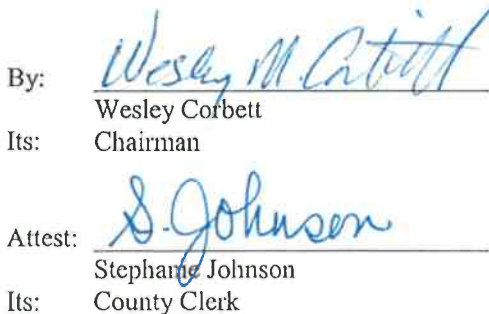 Wesley M. Corbett
By:
Wesley Corbett
Its: Chairman
S. Johnson
Attest:
Stephanie Johnson
Its: County Clerk